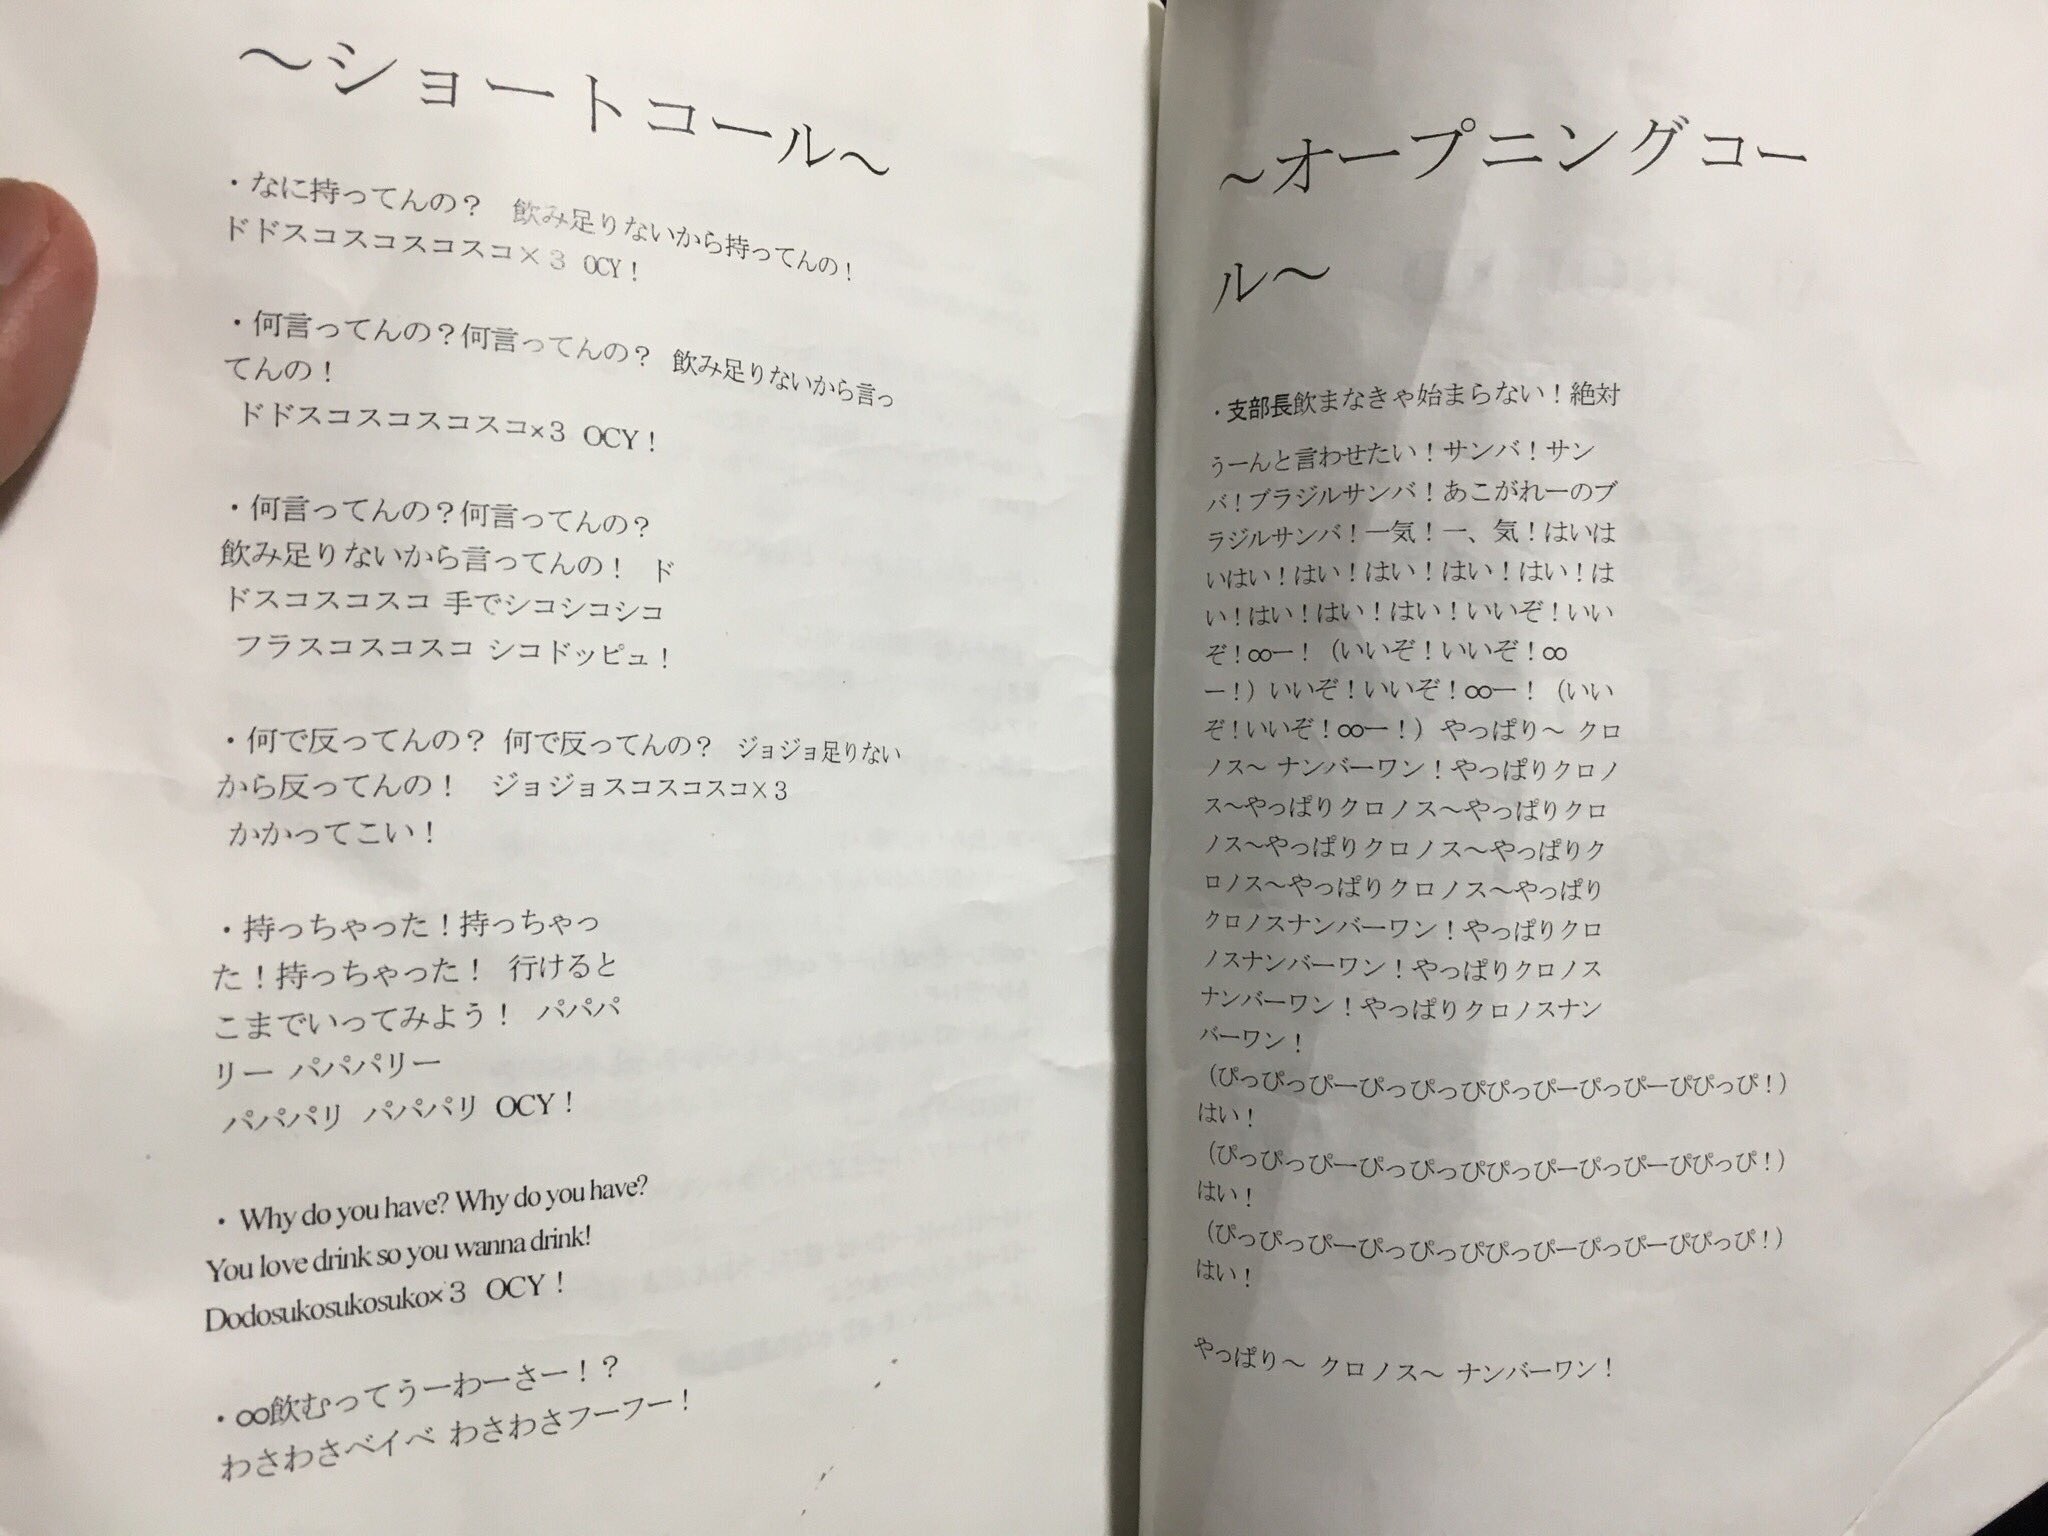 ～ショートコール～
・なに持ってんの？　飲み足りないから持ってんの！
ドドスコスコスコスコ×３ OCY！
・何言ってんの？何言ってんの？ 飲み足りないから言っ
てんの！
ドドスコスコスコスコ×３ OCY！
・何言ってんの？何言ってんの？
飲み足りないから言ってんの！ ド
ドスコスコスコ 手でシコシコシコ
フラスコスコスコ シコドッピュ！
・何で反ってんの？ 何で反ってんの？ ジョジョ足りない
から反ってんの！　ジョジョスコスコスコ×３
かかってこい！
・持っちゃった！持っちゃっ
た！持っちゃった！ 行けると
こまでいってみよう！ パパパ
リー パパパリー
パパパリ パパパリ OCY！
・Why do you have? Why do you have?
You love drink so you wanna drink!
Dodosukosukosuko×３ OCY！
・∞飲むってうーわーさー！？
わさわさベイベ わさわさフーフー！
～オープニングコー
ル～
・支部長飲まなきゃ始まらない！絶対
うーんと言わせたい！サンバ！サン
バ！ブラジルサンバ！あこがれーのブ
ラジルサンバ！一気！一、気！はいは
いはい！はい！はい！はい！はい！は
い！はい！はい！はい！いいぞ！いい
ぞ！∞ー！（いいぞ！いいぞ！∞
ー！）いいぞ！いいぞ！∞ー！（いい
ぞ！いいぞ！∞ー！）やっぱり～ クロ
ノス～ ナンバーワン！やっぱりクロノ
ス～やっぱりクロノス～やっぱりクロ
ノス～やっぱりクロノス～やっぱりク
ロノス～やっぱりクロノス～やっぱり
クロノスナンバーワン！やっぱりクロ
ノスナンバーワン！やっぱりクロノス
ナンバーワン！やっぱりクロノスナン
バーワン！
（ぴっぴっぴーぴっぴっぴぴっぴーぴっぴーぴぴっぴ！）
はい！
（ぴっぴっぴーぴっぴっぴぴっぴーぴっぴーぴぴっぴ！）
はい！
（ぴっぴっぴーぴっぴっぴぴっぴーぴっぴーぴぴっぴ！）
はい！
やっぱり～ クロノス～ ナンバーワン！